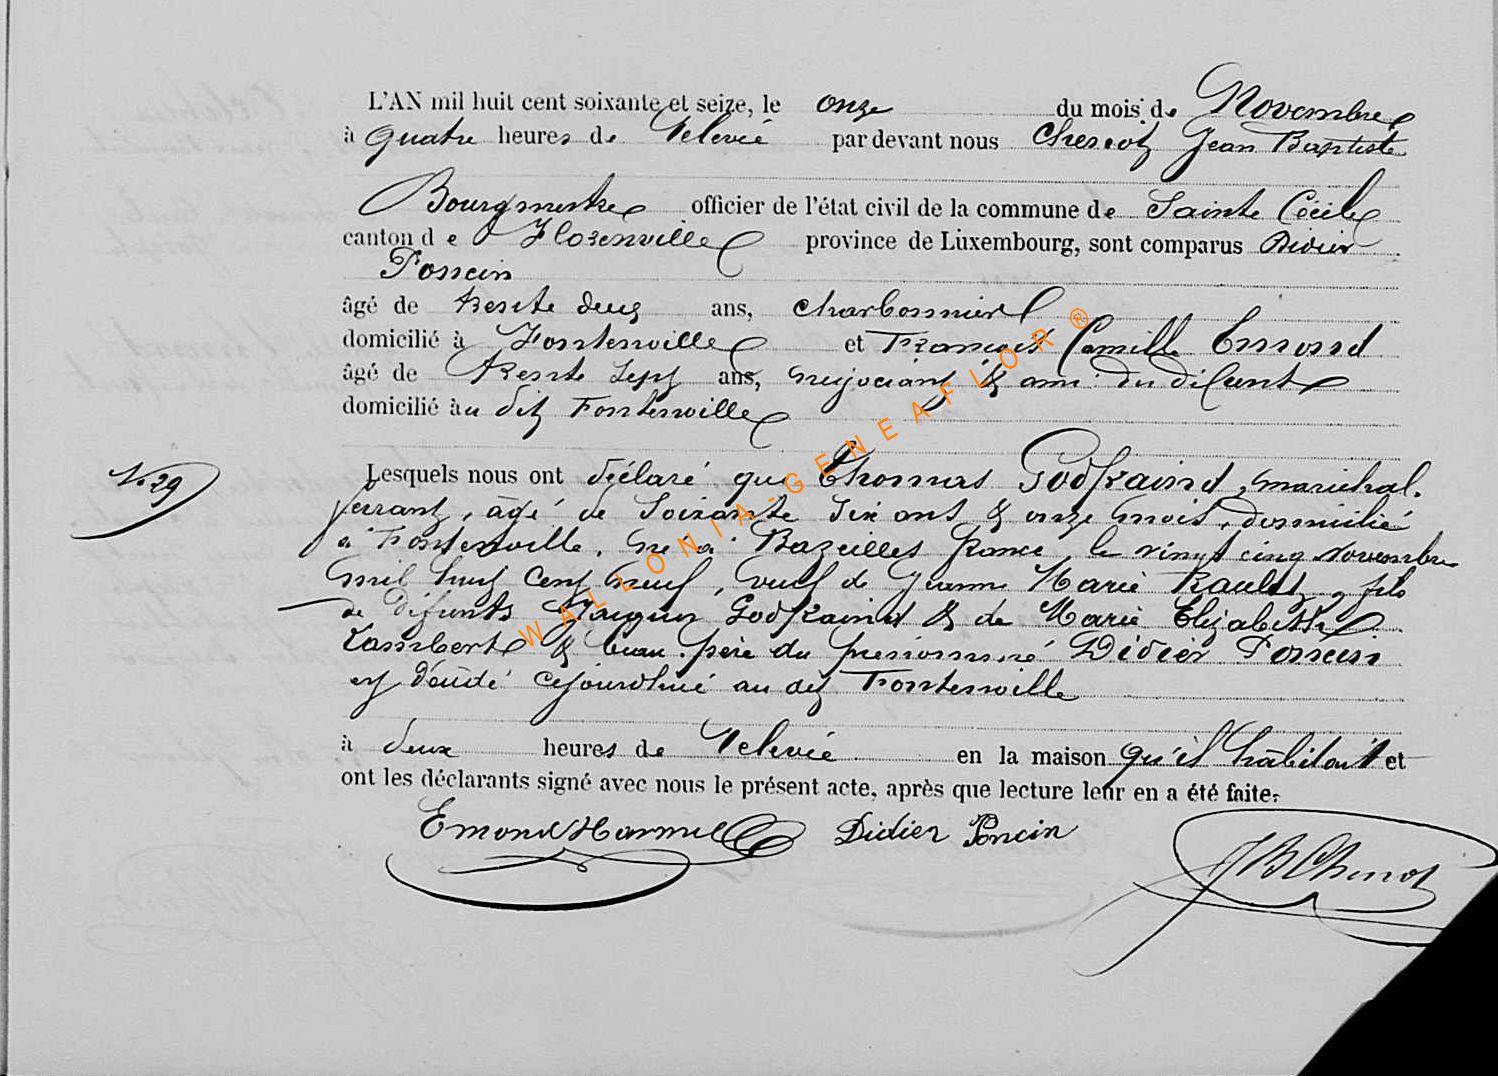 L'AN mil huit cent soixante et seize, le onze du mois de Novembre
à quatre heures de relevée par devant nous Chenot Jean Baptiste
Bourgmestre officier de l'état civil de la commune de Sainte Cécile
canton de Florenville province de Luxembourg, sont comparus Didier
Poncin
âgé de trente deux ans, charbonnier
domicilié à Fontenoille et François Camille Emond
âgé de trente sept ans, négociant & ami du défunt
domicilié au dit Fontenoille
N. 29
Lesquels nous ont déclaré que Thomas Godfraind, maréchal
ferrant, âgé de soixante six ans & onze mois, domicilié
à Fontenoille, né à Bazeilles france, le vingt cinq novembre
mil huit cent neuf, veuf de Jeanne Marie Rault, fils
de défunts Jacques Godfraind & de Marie Elizabeth
Lambert & beau-père du prénommé Didier Poncin
est décédé cejourd'hui au dit Fontenoille
à deux heures de relevée en la maison qu'il habitait et
ont les déclarants signé avec nous le présent acte, après que lecture leur en a été faite.
Emond Harmel Didier Poncin
JB Chenot
WALLONIA-GENEAFLOR®